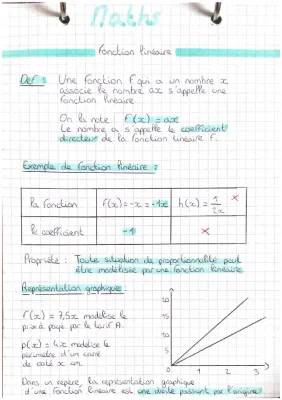 Maths
Fonction linéaire
Def : Une fonction f qui a un nombre x
associe le nombre ax s'appelle une
fonction linéaire.
On la note f(x) = ax
Le nombre a s'appelle le coefficient
directeur de la fonction linéaire f.
Exemple de fonction linéaire :
la fonction f(x) = -x = -1x h(x) = 1/2x x
le coefficient -1 x
Propriété : Toute situation de proportionnalité peut
être modélisée par une fonction linéaire
Représentation graphique :
f(x) = 7,5x modélise le
prix à payer par le tarif A.
p(x) = 4x modélise le
périmètre d'un carré
de côté x cm.
20
15
10
5
0 1 2 3
Dans un repère, la représentation graphique
d'une fonction linéaire est une droite passant par l'origine